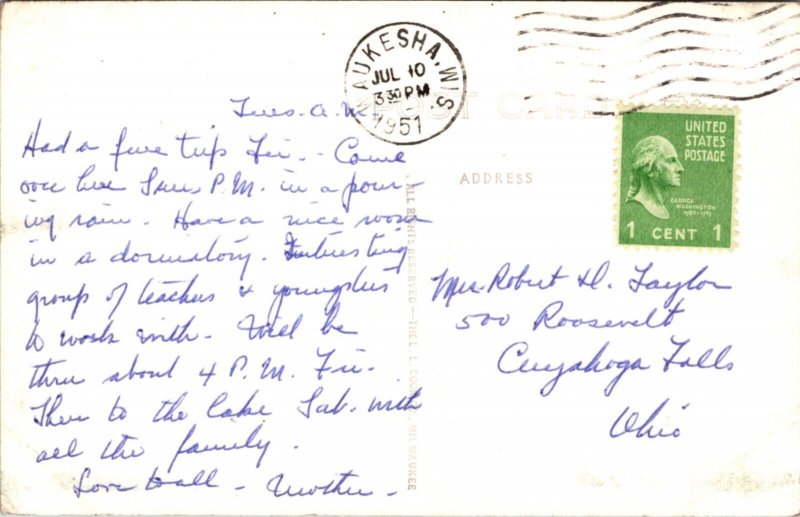 WAUKESHA, WIS.
JUL 10
3 30 PM
1951
POST CARD
Tues. A.M.
Had a fine trip Fri. - Came
over here Sun P.M. in a pour-
ing rain. Have a nice room
in a dormitory. Interesting
group of teachers & youngsters
to work with. Will be
thru about 4 P.M. Fri.
Then to the lake Sat. with
all the family.
Love to all - Mother -
ALL RIGHTS RESERVED - THE L. L. COOK CO. MILWAUKEE
ADDRESS
UNITED
STATES
POSTAGE
GEORGE
WASHINGTON
1 CENT 1
Mrs. Robert D. Taylor
500 Roosevelt
Cuyahoga Falls
Ohio